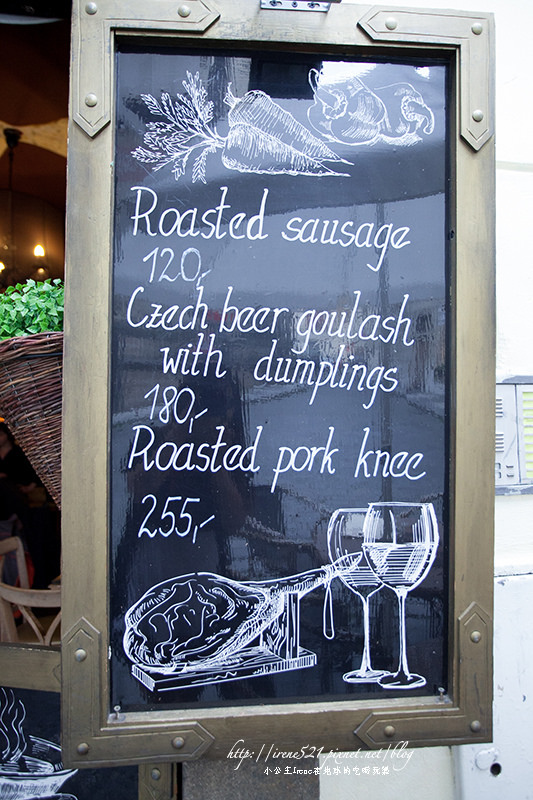 Roasted sausage
120,-
Czech beer goulash
with dumplings
180,-
Roasted pork knee
255,-
http://irene521.pixnet.net/blog
小公主Irene在地球的吃喝玩樂